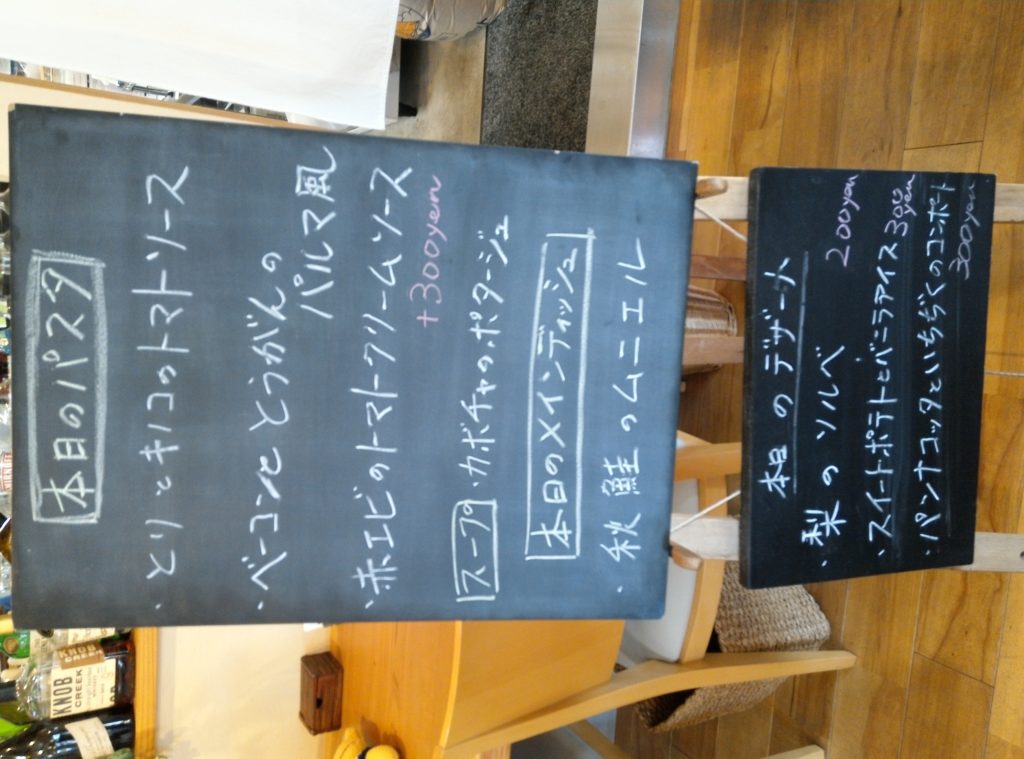 本日のパスタ
・とりとキノコのトマトソース
・ベーコンととうがんの
パルマ風
・赤エビのトマトクリームソース
+300yen
スープ・カボチャのポタージュ
本日のメインディッシュ
・秋鮭のムニエル
本日のデザート
・梨のソルベ
200yen
・スイートポテトとバニラアイス 300yen
・パンナコッタといちぢくのコンポート
300yen
KNOB
CREEK